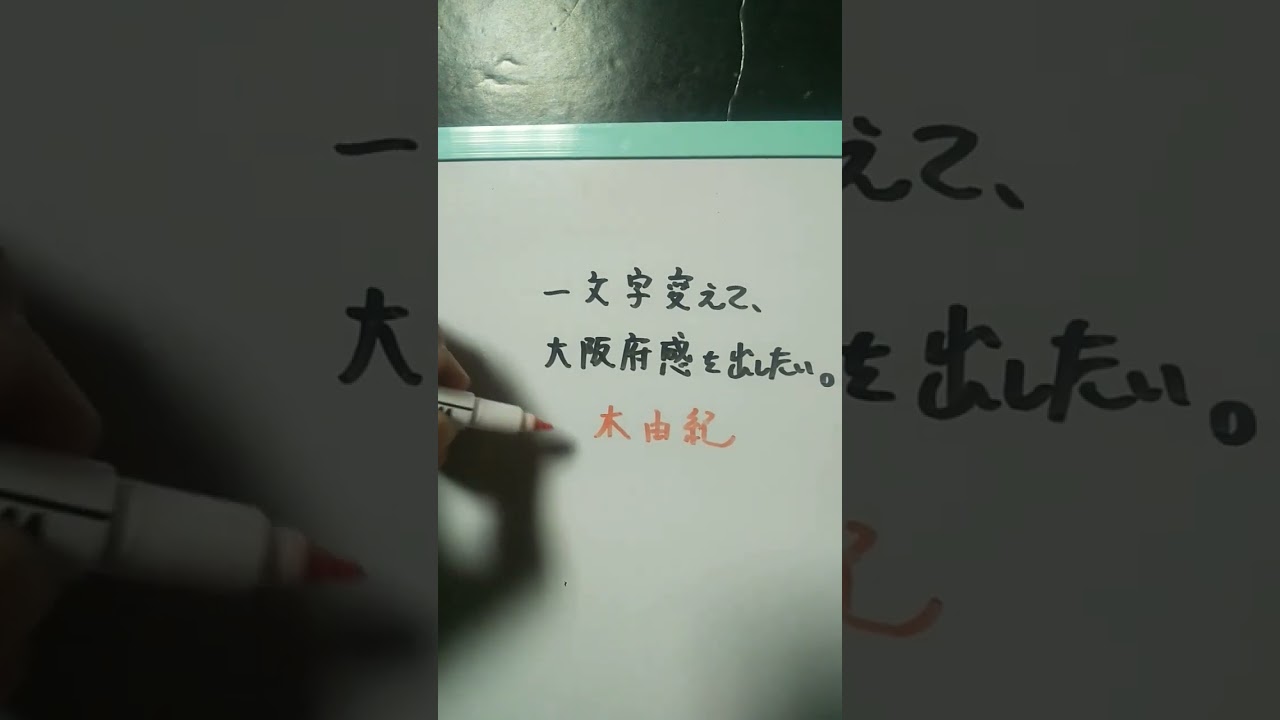 一文字変えて、
大阪府感を出したい。
木由紀